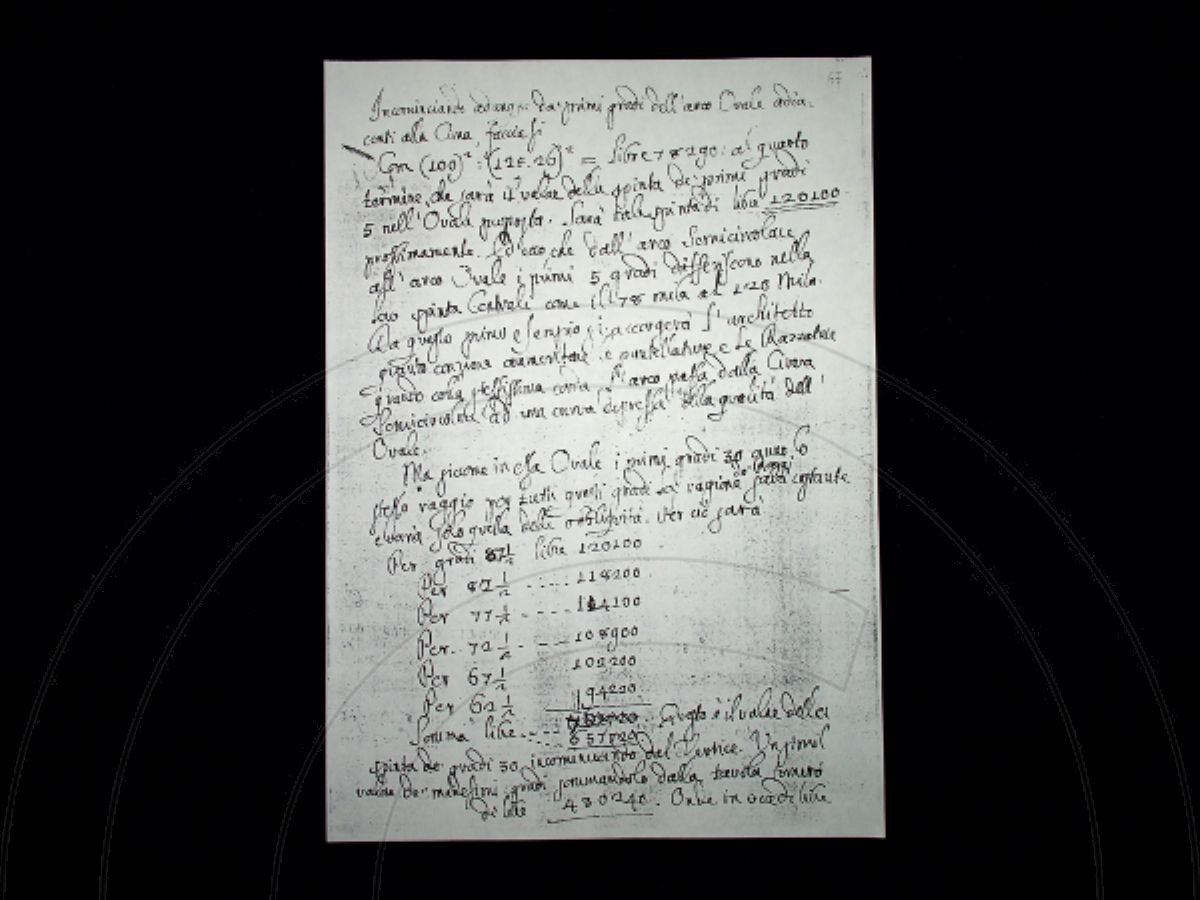 67
Incominciando adunque da' primi gradi dell'arco Ovale adia-
centi alla Cima, facciasi
Com (100)² : (126.26)² = libre 78290: al quarto
termine, che sarà il valore della spinta de' primi gradi
5 nell'Ovale proposta. Sarà tale spinta di libre 120100
prossimamente. Ed ecco che dall'arco Semicircolare
all'arco Ovale i primi 5 gradi differiscono nella
loro spinta Centrale come il 78 mila al 120 Mila.
Da questo primo esempio si accorgerà l'architetto
aumentare le puntellature e le
quando colla stessissima corda l'arco passa dalla Curva
Semicircolare ad una curva depressa della qualità dell'
Ovale.
Ma siccome in essa Ovale i primi gradi 30 hanno lo
stesso raggio per tutti questi gradi la ragione de' raggi sarà costante
e varia solo quella delle obliquità. Per ciò sarà
Per gradi 87½ libre 120100
Per 82½ ..... 118200
Per 77½ .... 114100
Per 72½ ..... 108900
Per 67½ 102200
Per 62½ 94220
Somma libre ..... 657720. Questo è il valore della
spinta de' gradi 30 incominciando dal Vertice. Un simil
valore de' medesimi gradi sommandolo dalla tavola
di libre 430240. Onde in vece di libre